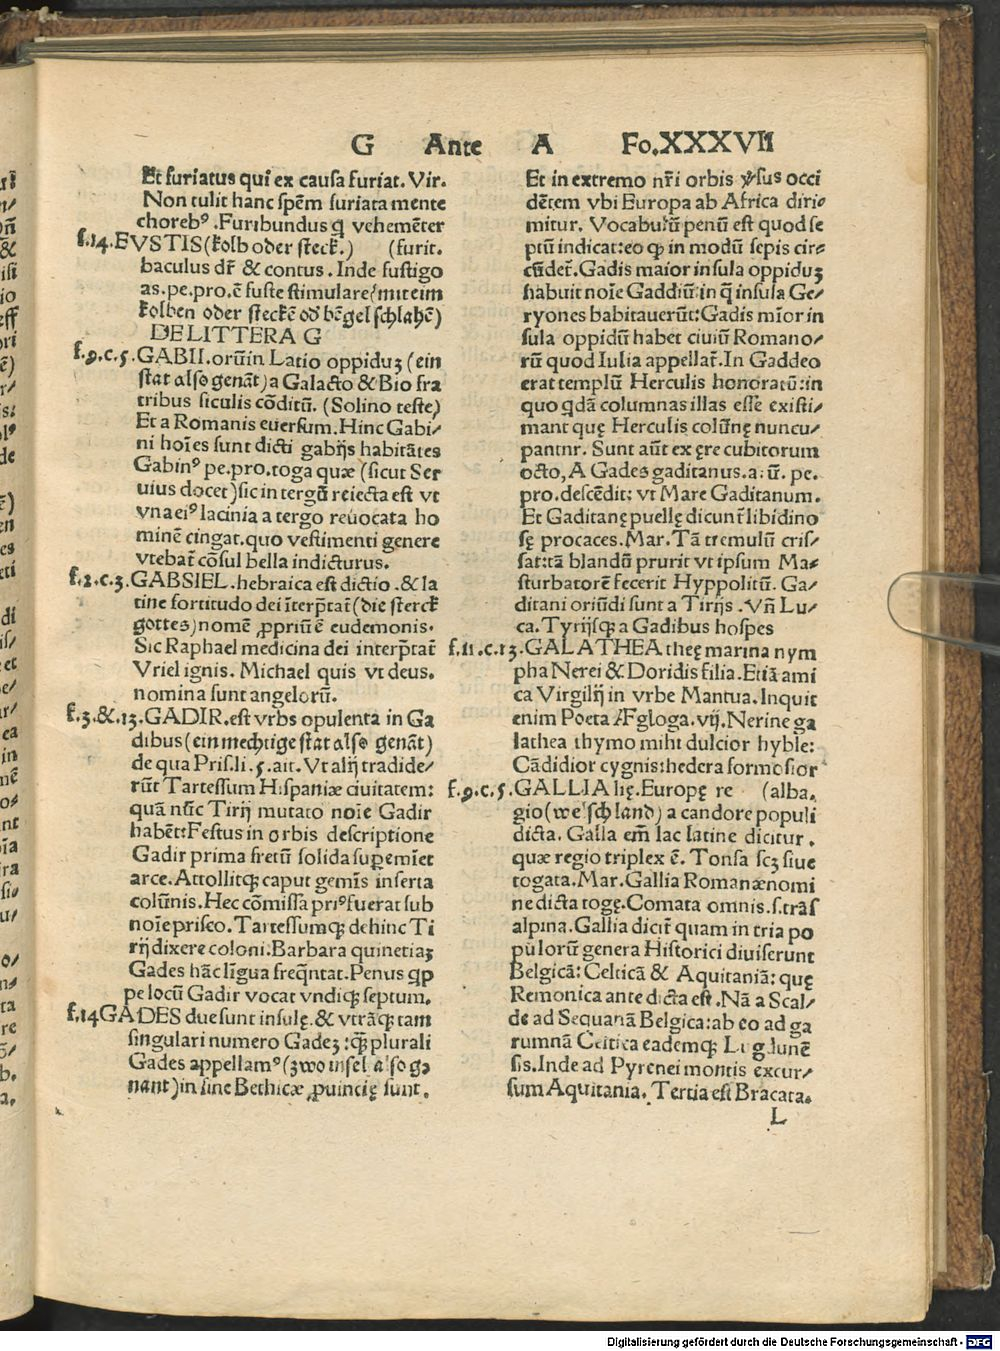 G Ante A Fo.XXXVII
Et furiatus qui ex causa furiat. Vir.
Non tulit hanc spēm furiata mente
chorebꝰ .Furibundus ꝗ vehemēter
f.14.FVSTIS(kolb oder steck.) (furit.
baculus dr̄ & contus. Inde fustigo
as.pe.pro.ē fuste stimulare(mit eim
kolben oder steckē od bēgel schlahē)
DE LITTERA G
f.9.c.5.GABII.orūin Latio oppiduꝫ (ein
stat also genāt)a Galacto & Bio fra
tribus siculis cōditū. (Solino teste)
Et a Romanis euersum. Hinc Gabi/
ni hoīes sunt dicti gabijs habitātes
Gabinꝰ pe.pro.toga quæ (sicut Ser
uius docet)sic in tergū reiecta est vt
vna eiꝰ lacinia a tergo reuocata ho
minē cingat.quo vestimenti genere
vtebat̄ cōsul bella indicturus.
f.2.c.3.GABSIEL.hebraica est dictio .& la
tine fortitudo dei īterp̄tat̄ (die sterck
gottes)nomē ꝓpriū ē eudemonis.
Sic Raphael medicina dei interp̄tat̄
Vriel ignis. Michael quis vt deus.
nomina sunt angelorū.
f.3.&.13.GADIR.est vrbs opulenta in Ga
dibus(ein mechtige stat also genāt)
de qua Pris.li.5.ait.Vt alij tradide/
rūt Tartessum Hispaniæ ciuitatem:
quā nūc Tirij mutato noīe Gadir
habēt:Festus in orbis descriptione
Gadir prima fretū solida supemīet
arce.Attollitqꝫ caput gemīs inserta
colūnis. Hec cōmissa priꝰfuerat sub
noīe prisco.Tartessumqꝫ dehinc Ti
rij dixere coloni:Barbara quinetiaꝫ
Gades hāc līgua freq̄ntat.Penus ꝗꝑ
pe locū Gadir vocat vndiqꝫ septum.
f.14GADES due sunt insulę.& vtrāqꝫ tam
singulari numero Gadeꝫ :qꝫ plurali
Gades appellamꝰ(zwo insel also ge
nant)in fine Bethicæ ꝓuincię sunt.
Et in extremo nr̄i orbis ꝟsus occi
dētem vbi Europa ab Africa diri/
mitur. Vocabulū penū est quod se
ptū indicat:eo qꝫ in modū sepis cir/
cūdet̄.Gadis maior insula oppiduꝫ
habuit noīe Gaddiū:in q̄ insula Ge/
ryones habitauerūt:Gadis mīor in
sula oppidū habet ciuiū Romano/
rū quod Iulia appellat̄.In Gaddeo
erat templū Herculis honoratū:in
quo ꝗdā columnas illas esse existi/
mant quę Herculis colūnę nuncu/
pantnr. Sunt aūt ex ęre cubitorum
octo, A Gades gaditanus.a.ū. pe.
pro.descēdit: vt Mare Gaditanum.
Et Gaditanę puellę dicunt̄ libidino
sę procaces. Mar. Tā tremulū cris/
sat:tā blandū prurit vt ipsum Ma/
sturbatorē fecerit Hyppolitū. Ga/
ditani oriūdi sunt a Tirijs .Vn̄ Lu/
ca.Tyrijsqꝫ a Gadibus hospes
f.11.c.13.GALATHEA theę marina nym
pha Nerei & Doridis filia. Etiā ami
ca Virgilij in vrbe Mantua. Inquit
enim Poeta Ægloga. vij. Nerine ga
lathea thymo mihi dulcior hyble:
Cādidior cygnis:hedera formosior
f.9.c.5.GALLIA lię.Europę re (alba.
gio(welschland) a candore populi
dicta. Galla em̄ lac latine dicitur .
quæ regio triplex ē. Tonsa scꝫ siue
togata.Mar.Gallia Romanæ nomi
ne dicta togę.Comata omnis.s.trās
alpina.Gallia dicit̄ quam in tria po
pulorū genera Historici diuiserunt
Belgicā: Celticā & Aquitaniā: quę
Remonica ante dicta est .Nā a Scal/
de ad Sequanā Belgica:ab eo ad ga
rumnā Celtica eademqꝫ Lugdunē
sis.Inde ad Pyrenei montis excur/
sum Aquitania. Tertia est Bracata.
L
Digitalisierung gefördert durch die Deutsche Forschungsgemeinschaft - DFG